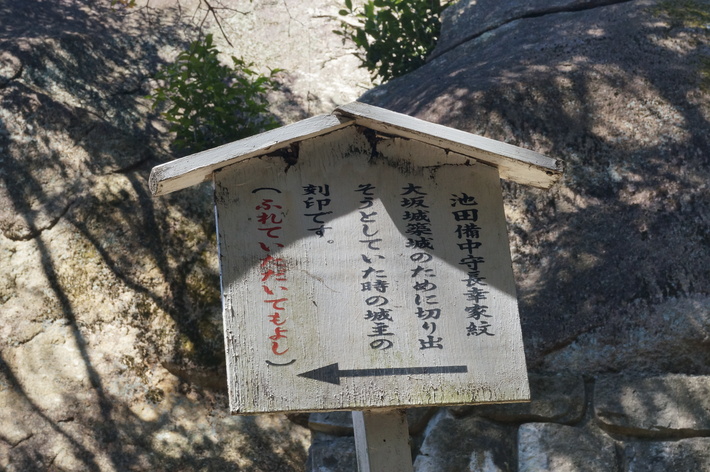 池田備中守長幸家紋
大坂城築城のために切り出
そうとしていた時の城主の
刻印です。
(ふれていただいてもよし)